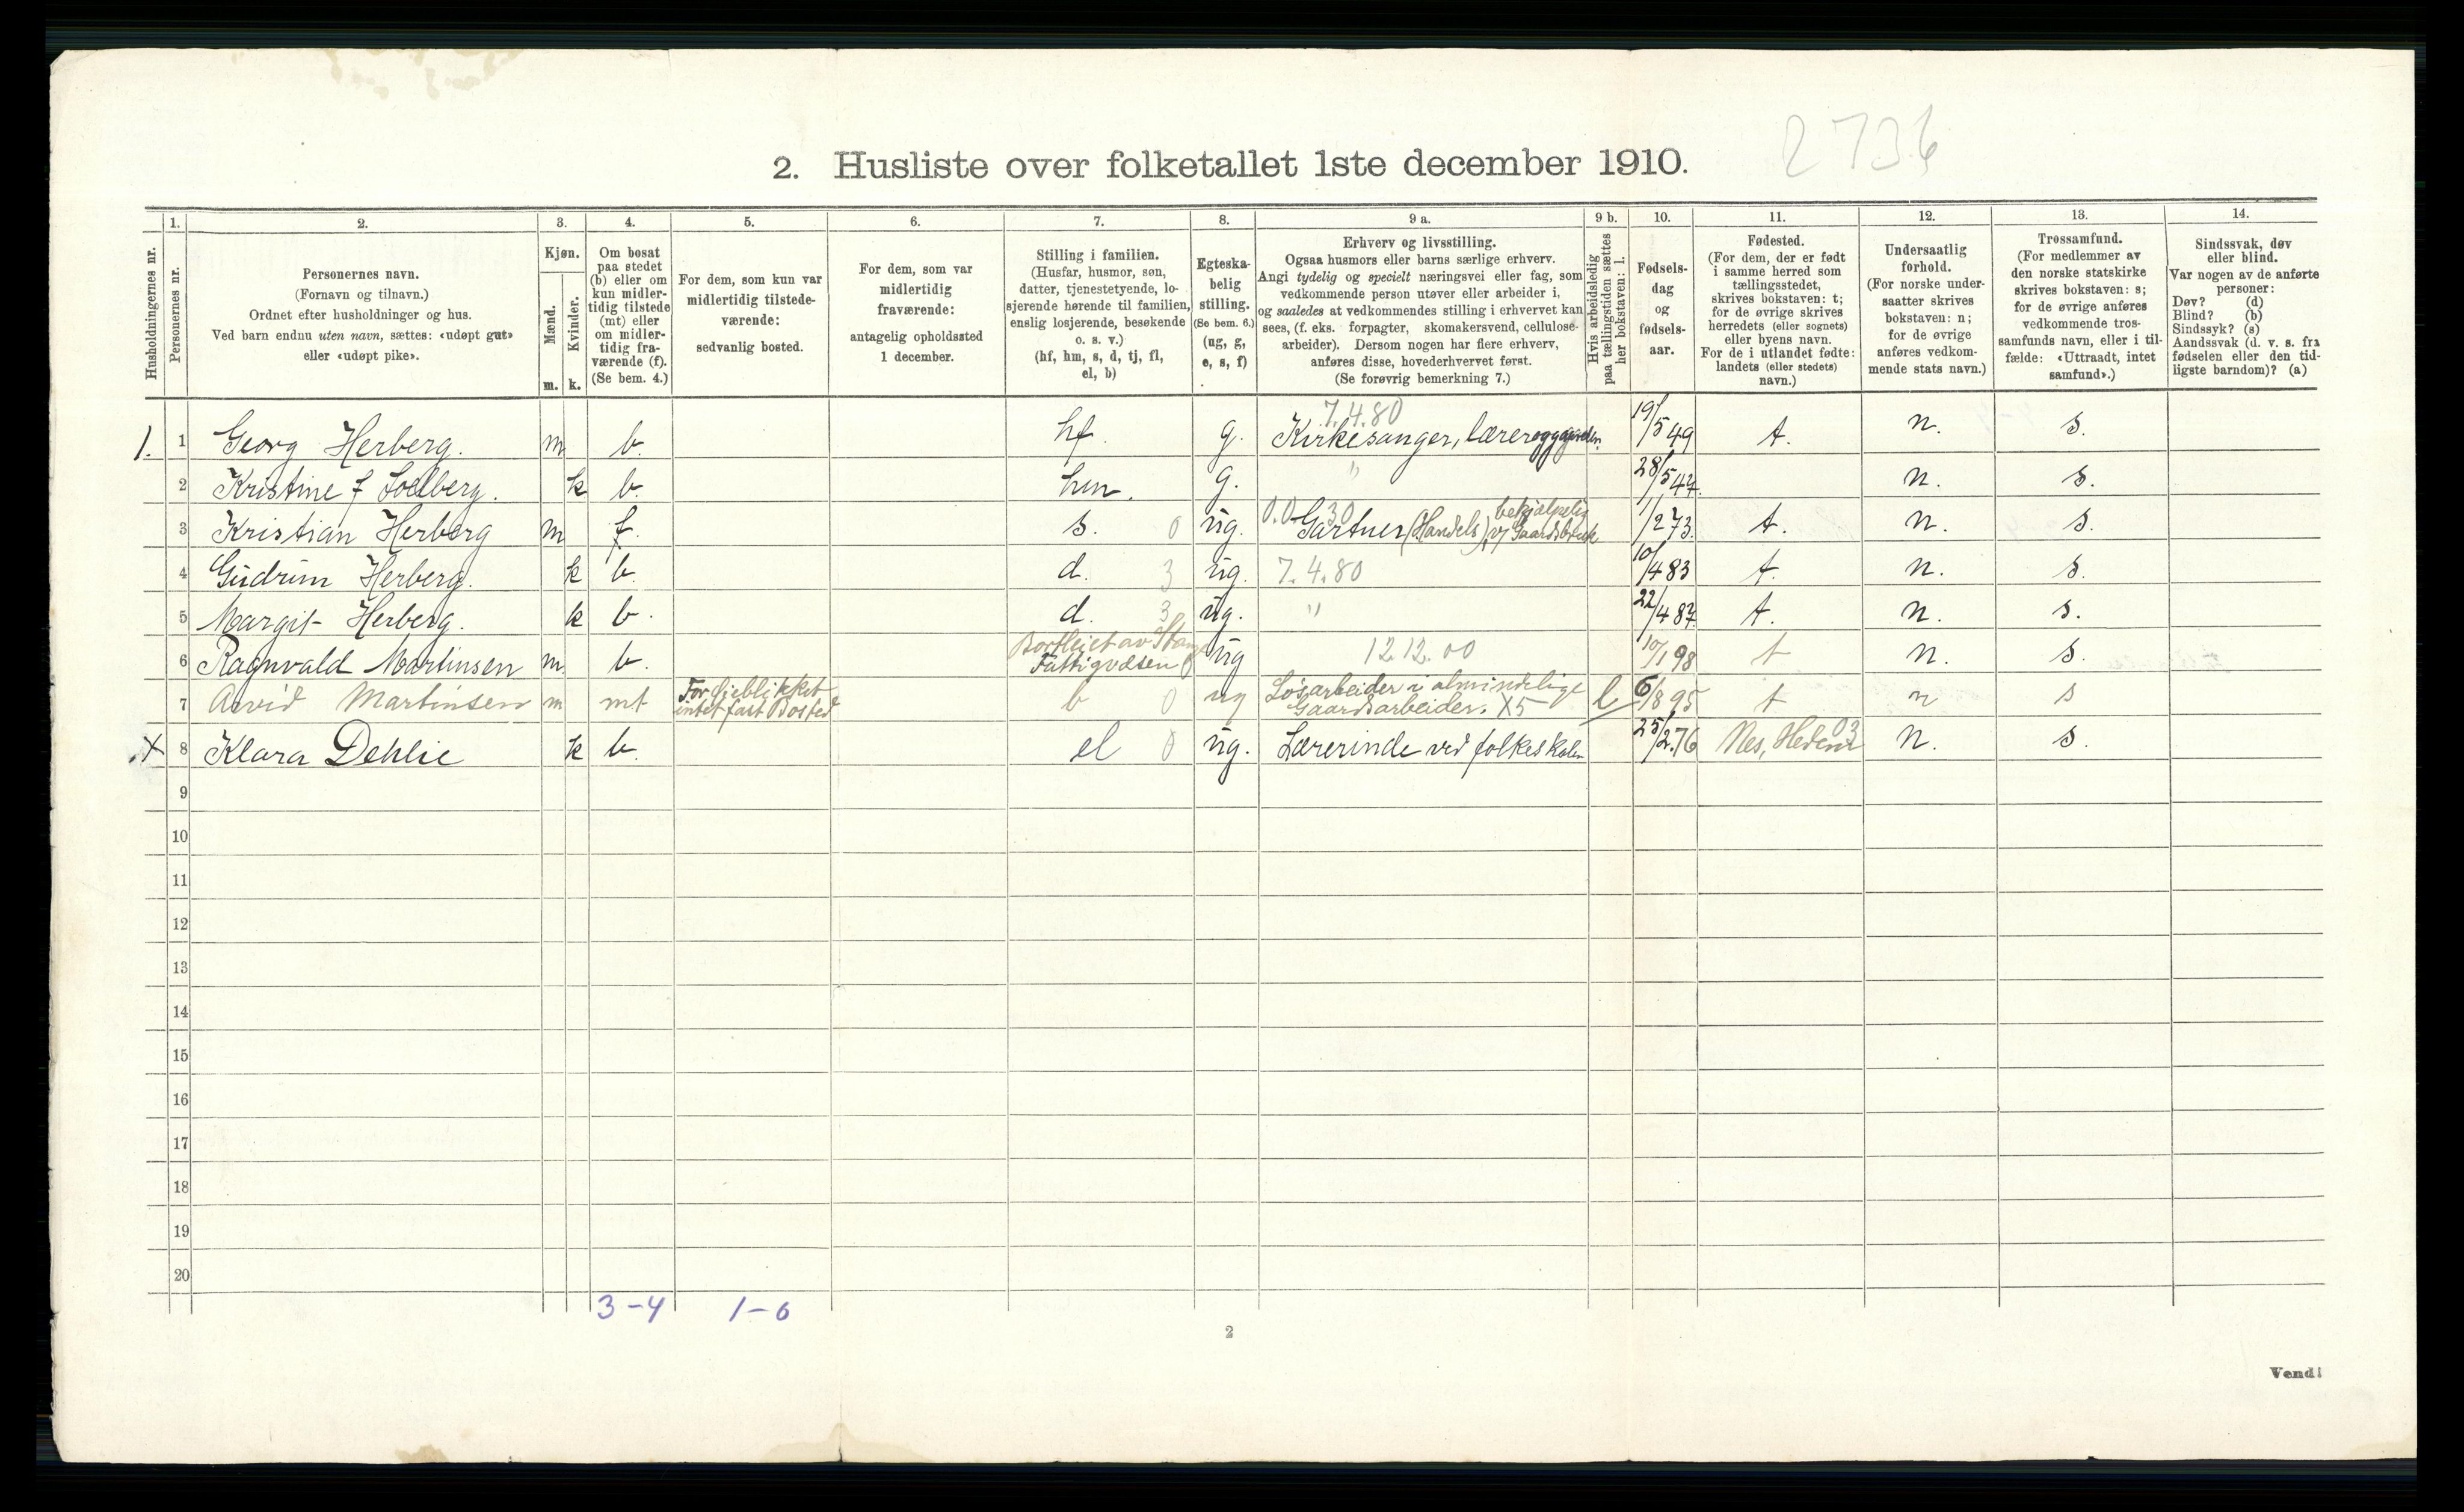 2736
2. Husliste over folketallet 1ste december 1910.
Husholdningernes nr.
1. Personernes nr.
2. Personernes navn.
(Fornavn og tilnavn.)
Ordnet efter husholdninger og hus.
Ved barn endnu uten navn, sættes: «udøpt gut»
eller «udøpt pike».
3. Kjøn.
Mænd. m.
Kvinder. k.
4. Om bosat
paa stedet
(b) eller om
kun midler-
tidig tilstede
(mt) eller
om midler-
tidig fra-
værende (f).
(Se bem. 4.)
5. For dem, som kun var
midlertidig tilstede-
værende:
sedvanlig bosted.
6. For dem, som var
midlertidig
fraværende:
antagelig opholdssted
1 december.
7. Stilling i familien.
(Husfar, husmor, søn,
datter, tjenestetyende, lo-
sjerende hørende til familien,
enslig losjerende, besøkende
o. s. v.)
(hf, hm, s, d, tj, fl,
el, b)
8. Egteska-
belig
stilling.
(Se bem. 6.)
(ug, g,
e, s, f)
9 a. Erhverv og livsstilling.
Ogsaa husmors eller barns særlige erhverv.
Angi tydelig og specielt næringsvei eller fag, som
vedkommende person utøver eller arbeider i,
og saaledes at vedkommendes stilling i erhvervet kan
sees, (f. eks. forpagter, skomakersvend, cellulose-
arbeider). Dersom nogen har flere erhverv,
anføres disse, hovederhvervet først.
(Se forøvrig bemerkning 7.)
9 b. Hvis arbeidsledig
paa tællingstiden sættes
her bokstaven: l.
10. Fødsels-
dag
og
fødsels-
aar.
11. Fødested.
(For dem, der er født
i samme herred som
tællingsstedet,
skrives bokstaven: t;
for de øvrige skrives
herredets (eller sognets)
eller byens navn.
For de i utlandet fødte:
landets (eller stedets)
navn.)
12. Undersaatlig
forhold.
(For norske under-
saatter skrives
bokstaven: n;
for de øvrige
anføres vedkom-
mende stats navn.)
13. Trossamfund.
(For medlemmer av
den norske statskirke
skrives bokstaven: s;
for de øvrige anføres
vedkommende tros-
samfunds navn, eller i til-
fælde: «Uttraadt, intet
samfund».)
14. Sindssvak, døv
eller blind.
Var nogen av de anførte
personer:
Døv? (d)
Blind? (b)
Sindssyk? (s)
Aandssvak (d. v. s. fra
fødselen eller den tid-
ligste barndom)? (a)
7.4.80
1. 1 Georg Herberg. m b. hf. g. Kirkesanger, lærer 19/5 49 t. n. s.
2 Kristine f Solberg. k b. hm. g. " 28/5 47. n. s.
3 Kristian Herberg m f. s. 0 ug. 0.0 30 Gartner (Handels), bekjælpelig v/ Gaardsbruk 1/2 73. t. n. s.
4 Gudrun Herberg. k b. d. 3 ug. 7.4.80 10/4 83 t. n. s.
5 Margit Herberg. k b. d. 3 ug. " 22/4 87. t. n. s.
6 Ragnvald Martinsen m. b. Bortleiet av Stange
Fattigvæsen 0 ug 12.12.00 10/1 98 t n. s.
7 Arvid Martinsen m mt For Øieblikket
intet fast Bosted b 0 ug Løsarbeider i almindelige
Gaardsarbeider. X5 l 6/8 95 t n s
X 8 Klara Dehlie k b. el 0 ug. Lærerinde ved folkeskolen 25/2.76 Nes, Hedem 03 n. s.
9
10
11
12
13
14
15
16
17
18
19
20
3-4 1-0
2
Vend!